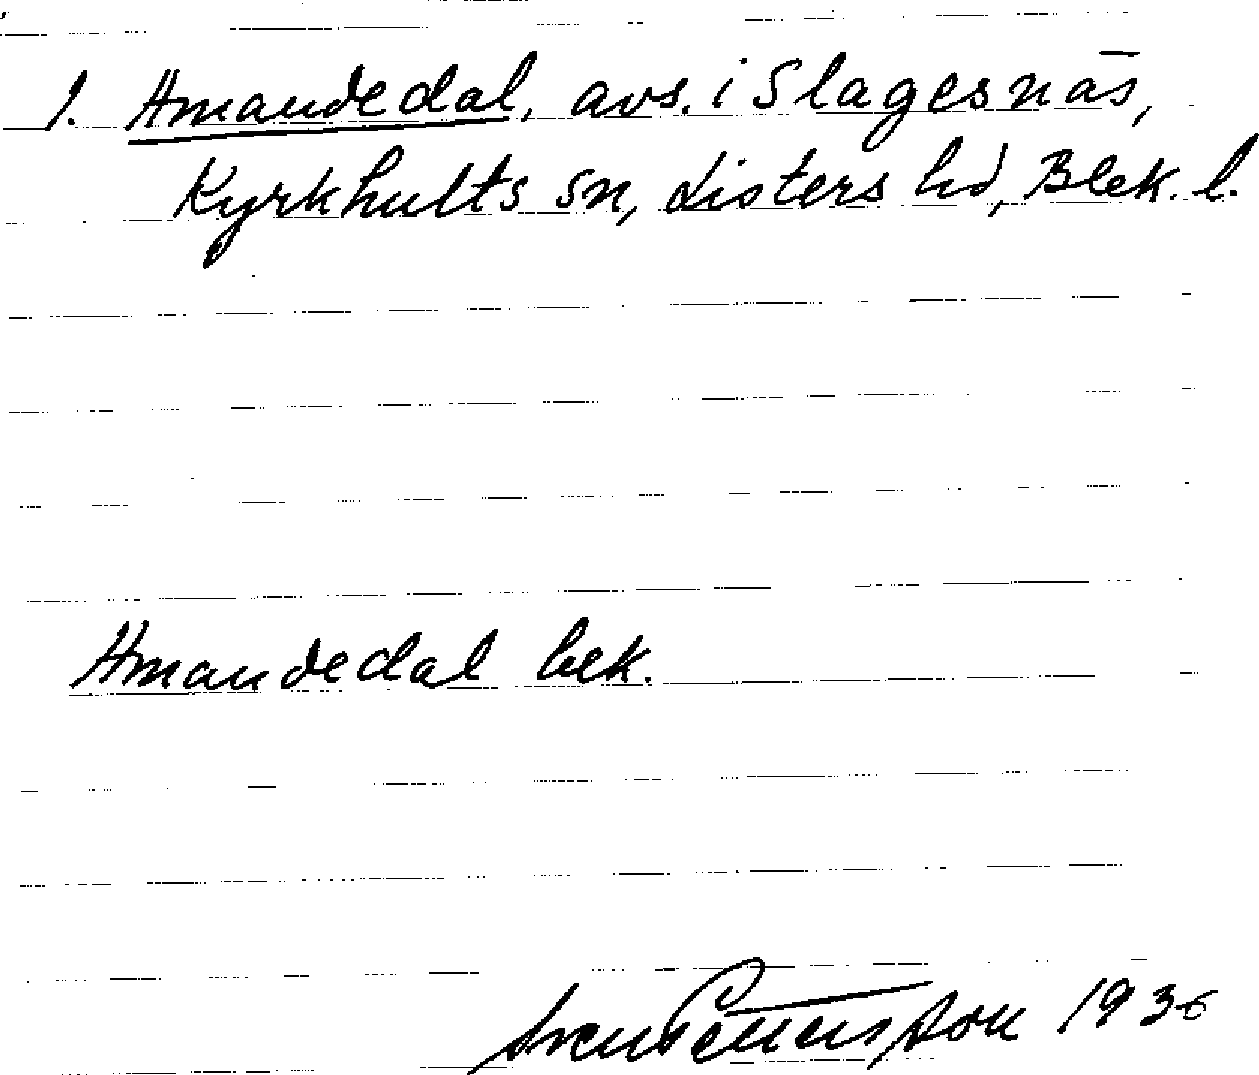 1. Amandedal, avs. i Slagesnäs,
Kyrkhults sn, Listers hd, Blek. l.
Amandedal bek.
Sven Pettersson 1936